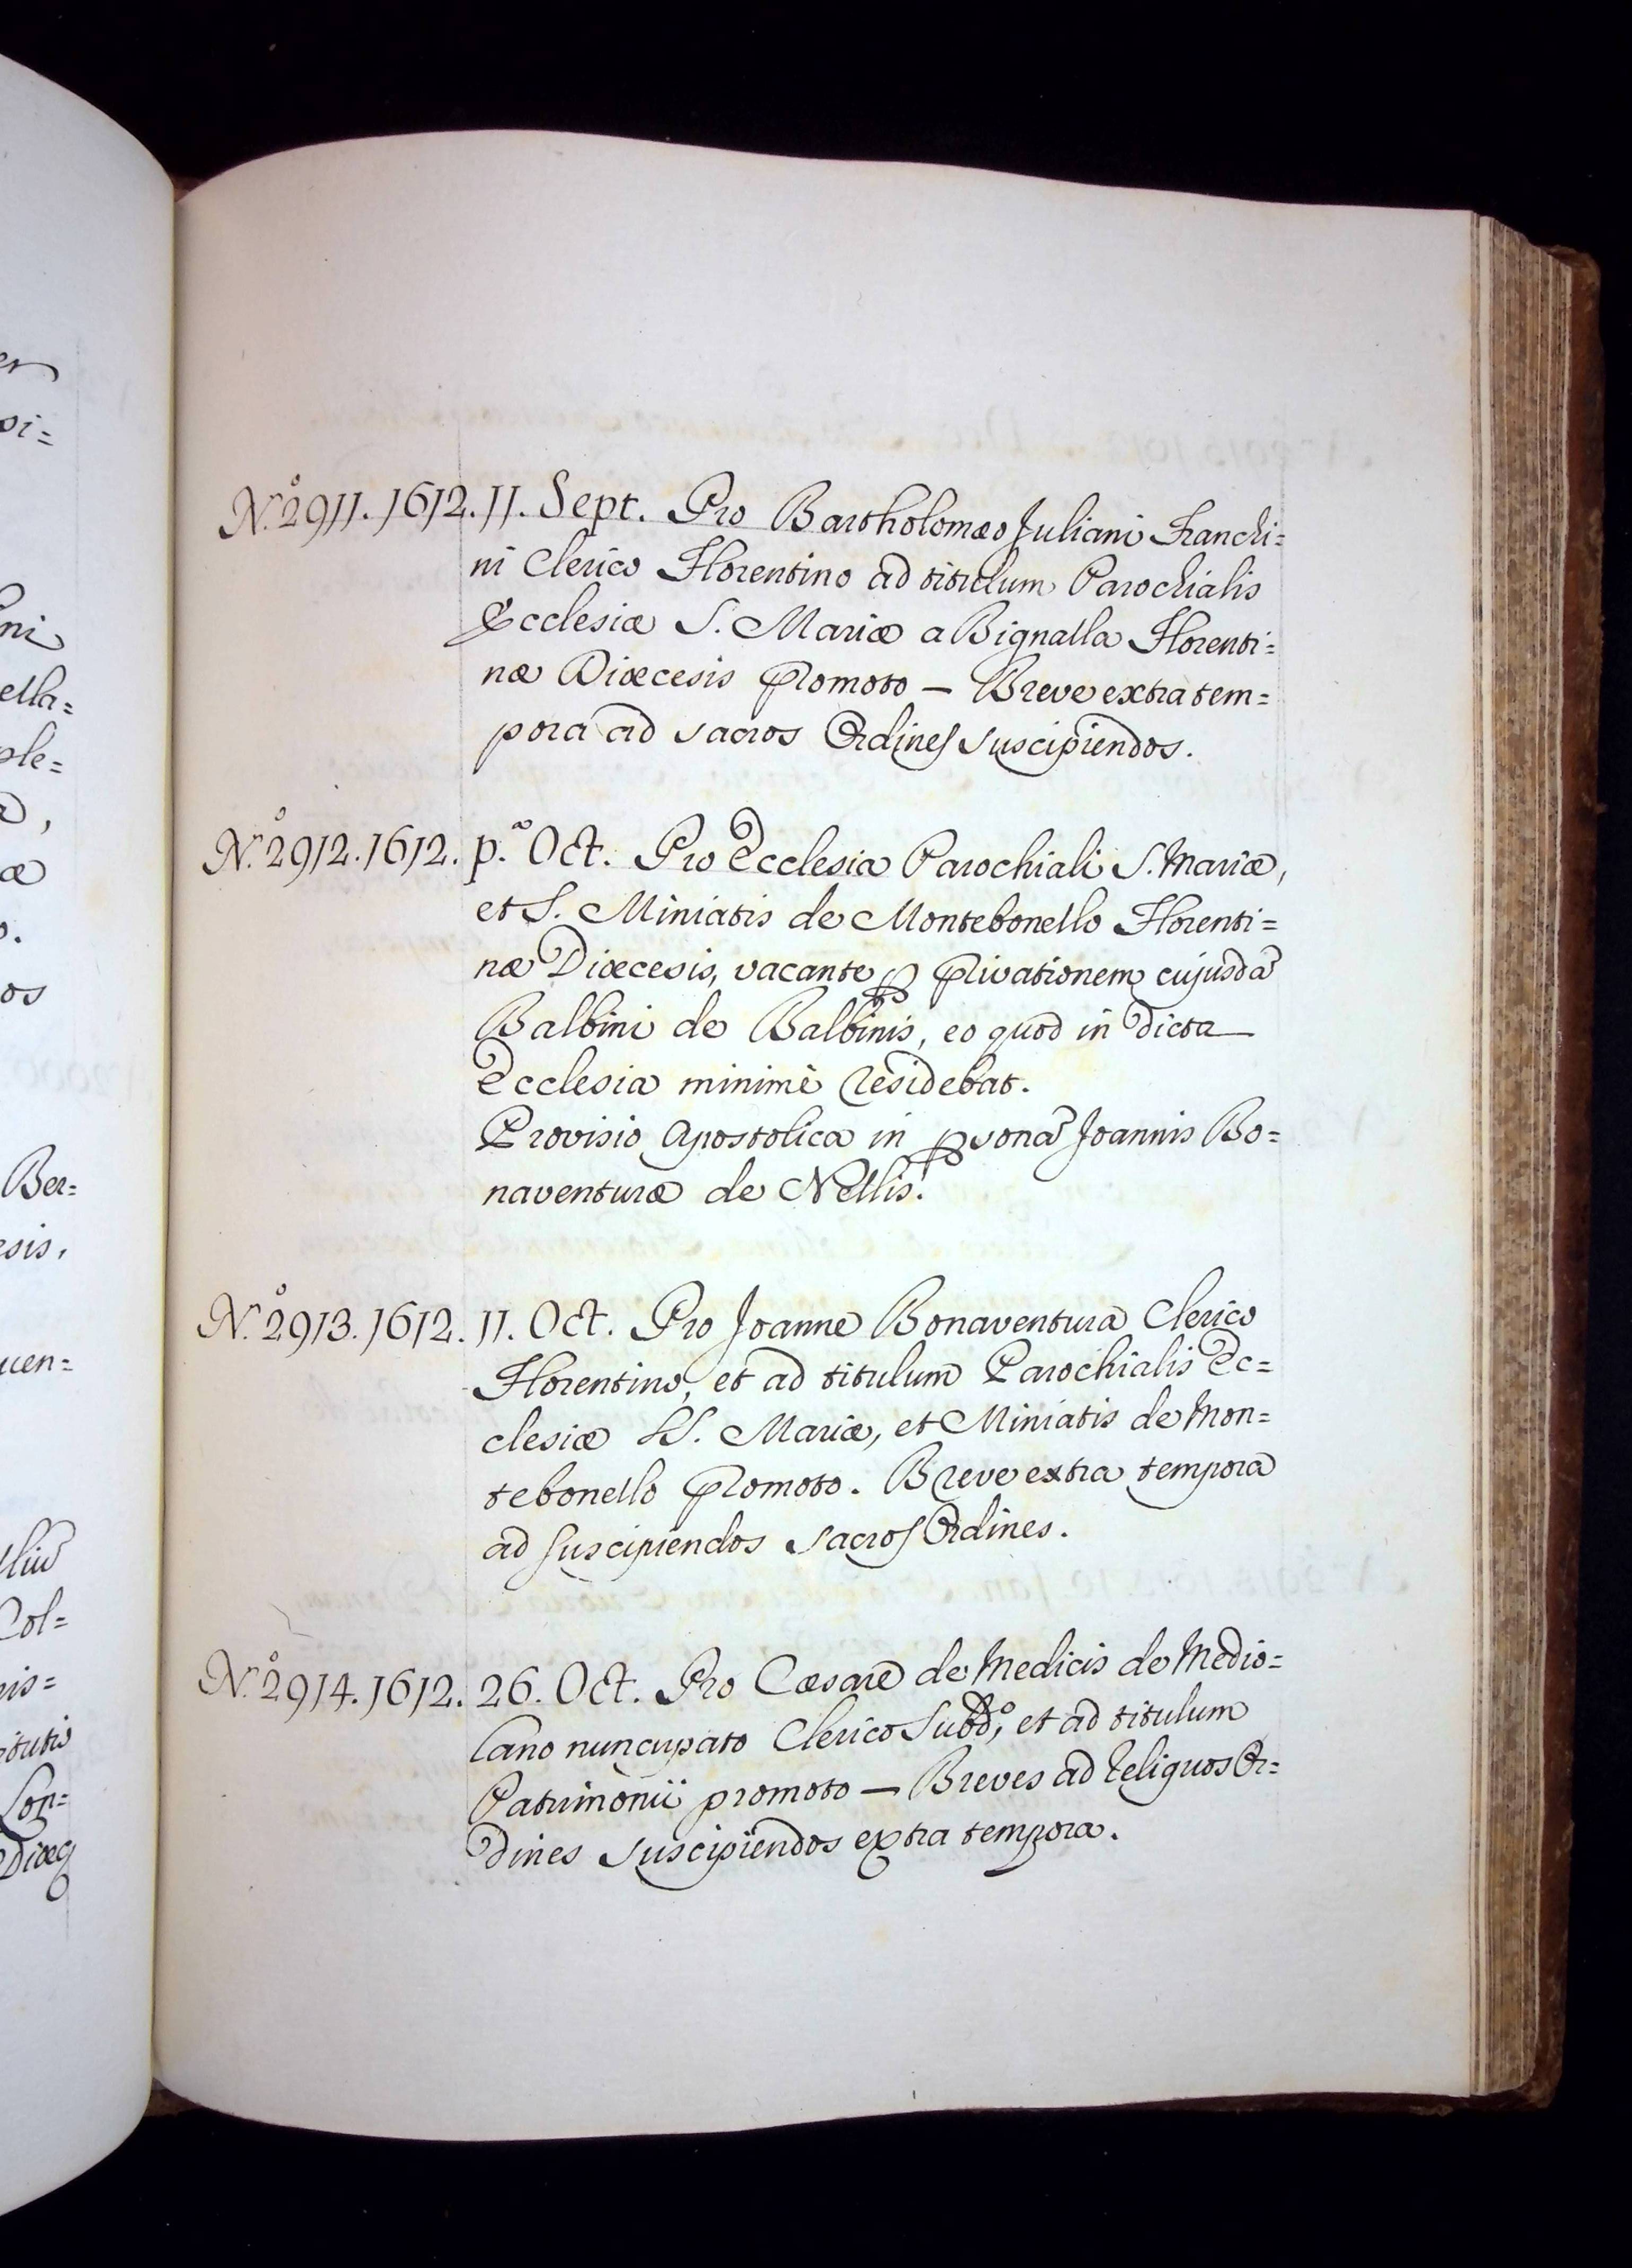 N.º 2911. 1612. 11. Sept. Pro Bartholomæo Juliani Franchi=
ni Clerico Florentino ad titulum Parochialis
Ecclesiæ S. Mariæ a Bignalla Florenti=
næ Diœcesis promoto — Breve extra tem=
pora ad sacros Ordines suscipiendos.
N.º 2912. 1612. p.ª Oct. Pro Ecclesia Parochiali S. Mariæ,
et S. Miniatis de Montebonello Florenti=
næ Diœcesis, vacante ꝑ privationem cujusdã
Balbini de Balbinis, eo quod in dicta
Ecclesia minimè residebat.
Provisio Apostolica in ꝑsonã Joannis Bo=
naventuræ de Nellis.
N.º 2913. 1612. 11. Oct. Pro Joanne Bonaventura Clerico
Florentino, et ad titulum Parochialis Ec=
clesiæ SS. Mariæ, et Miniatis de Mon=
tebonello promoto. Breve extra tempora
ad suscipiendos sacros Ordines.
N.º 2914. 1612. 26. Oct. Pro Cæsare de Medicis de Medio=
lano nuncupato Clerico Subd.º, et ad titulum
Patrimonii promoto — Breves ad reliquos Or=
dines suscipiendos extra tempora.
ni
ella=
ple=
æ
os
Ber=
esis,
uen=
Col=
nis=